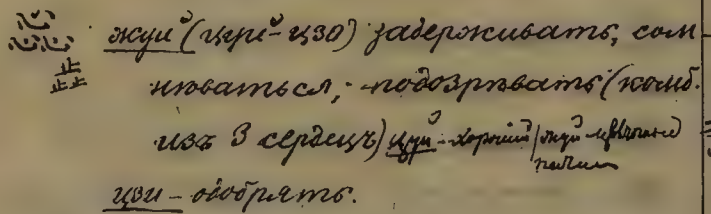 惢 жуй (цуй-цзо) задерживать, сом
歮 нѣваться; подозрѣвать (комб.
изъ 3 сердецъ) цуй - хорошій / жуй цвѣточные
цзи - одобрять.